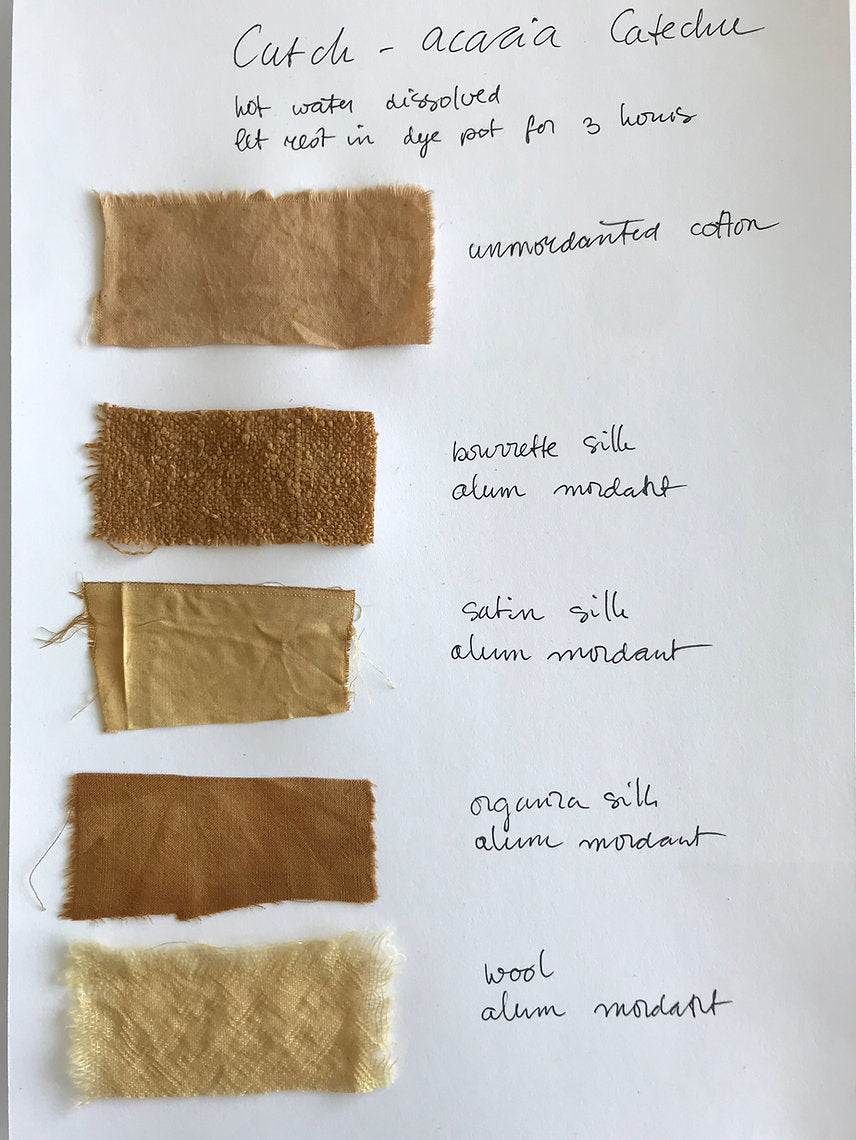 Cutch - acacia Catechu
hot water dissolved
let rest in dye pot for 3 hours
unmordanted cotton
bourrette silk
alum mordant
satin silk
alum mordant
organza silk
alum mordant
wool
alum mordant